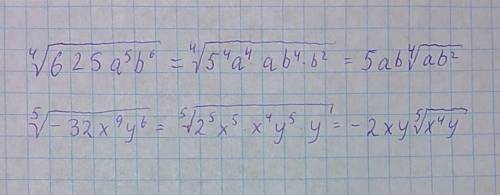 ⁴√(625a⁵b⁶) = ⁴√(5⁴a⁴ ab⁴·b²) = 5ab ⁴√(ab²)
⁵√(-32x⁹y⁶) = ⁵√(2⁵x⁵·x⁴y⁵·y) = -2xy ⁵√(x⁴y)